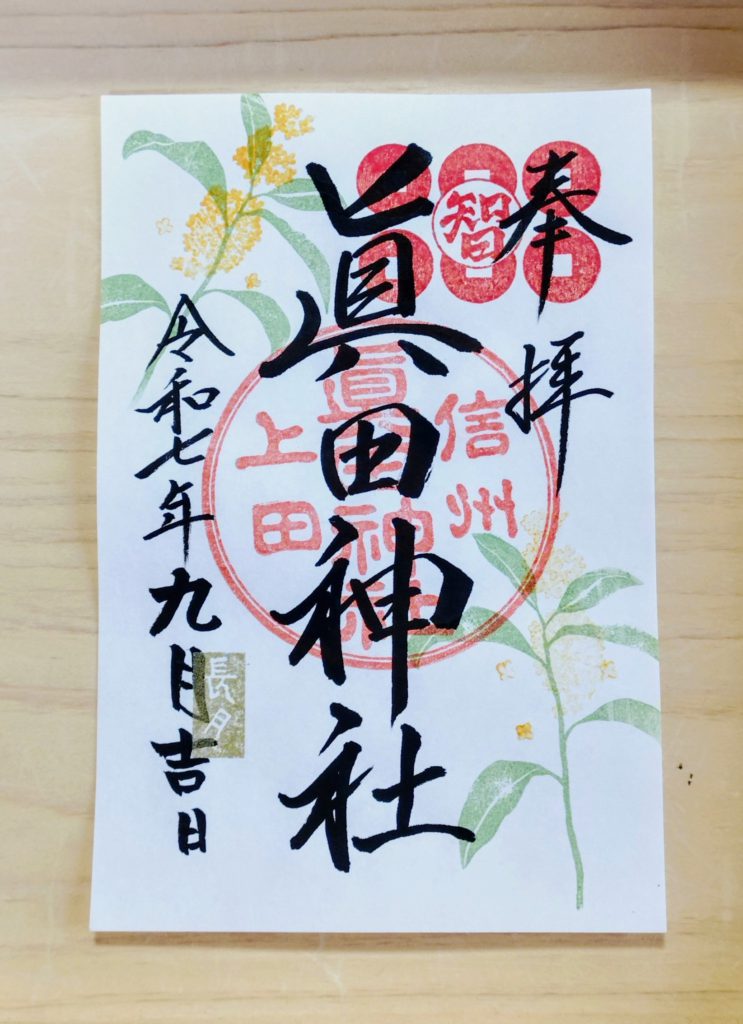 奉拝
智
眞田神社
信州
眞田神社
上田
令和七年九月吉日
長月